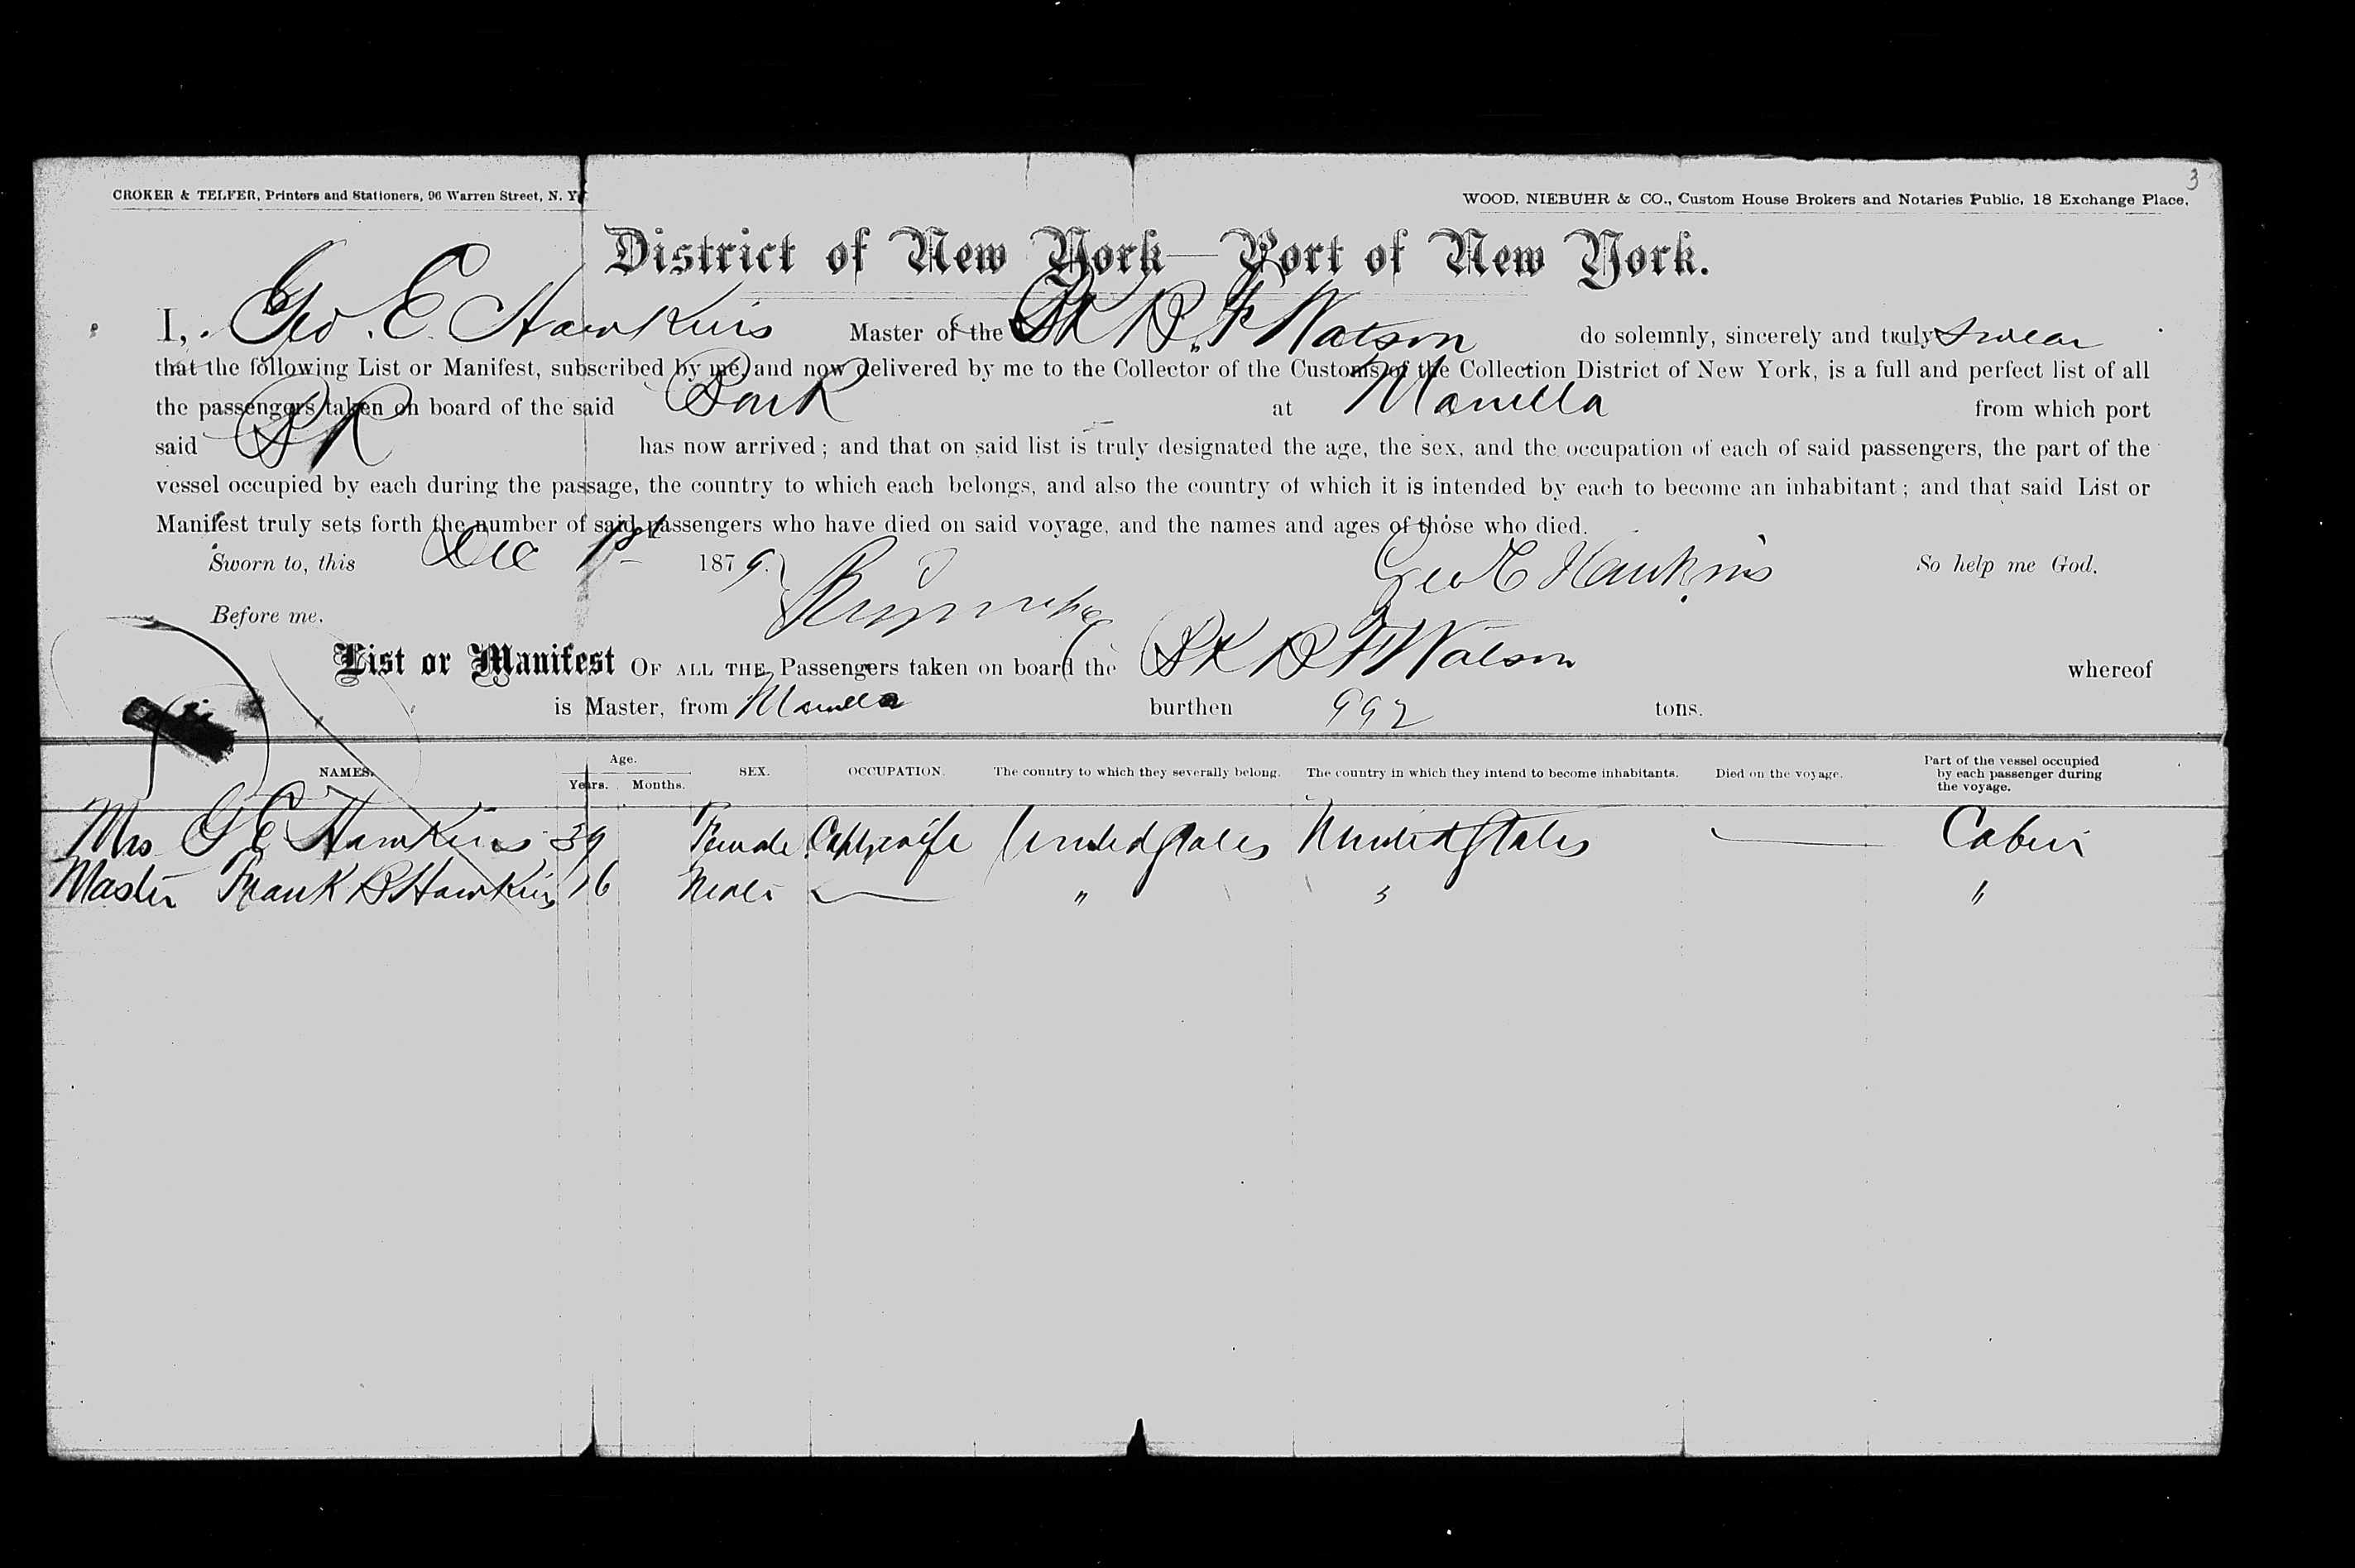 3
CROKER & TELFER, Printers and Stationers, 96 Warren Street, N. Y.
WOOD, NIEBUHR & CO., Custom House Brokers and Notaries Public, 18 Exchange Place.
District of New York—Port of New York.
I, Geo. E. Hawkins Master of the Bk B. F. Watson do solemnly, sincerely and truly swear
that the following List or Manifest, subscribed by me, and now delivered by me to the Collector of the Customs of the Collection District of New York, is a full and perfect list of all
the passengers taken on board of the said Bark at Manilla from which port
said Bk has now arrived; and that on said list is truly designated the age, the sex, and the occupation of each of said passengers, the part of the
vessel occupied by each during the passage, the country to which each belongs, and also the country of which it is intended by each to become an inhabitant; and that said List or
Manifest truly sets forth the number of said passengers who have died on said voyage, and the names and ages of those who died.
Sworn to, this Dec 1st 1879. Geo E Hawkins So help me God.
Before me.
List or Manifest OF ALL THE Passengers taken on board the Bk B F Watson whereof
is Master, from Manilla burthen 992 tons.
NAMES. Age. Years. Months. SEX. OCCUPATION. The country to which they severally belong. The country in which they intend to become inhabitants. Died on the voyage. Part of the vessel occupied by each passenger during the voyage.
Mrs G E Hawkins 39 Female Capt wife United States United States — Cabin
Master Frank B Hawkins 16 Male — " " "